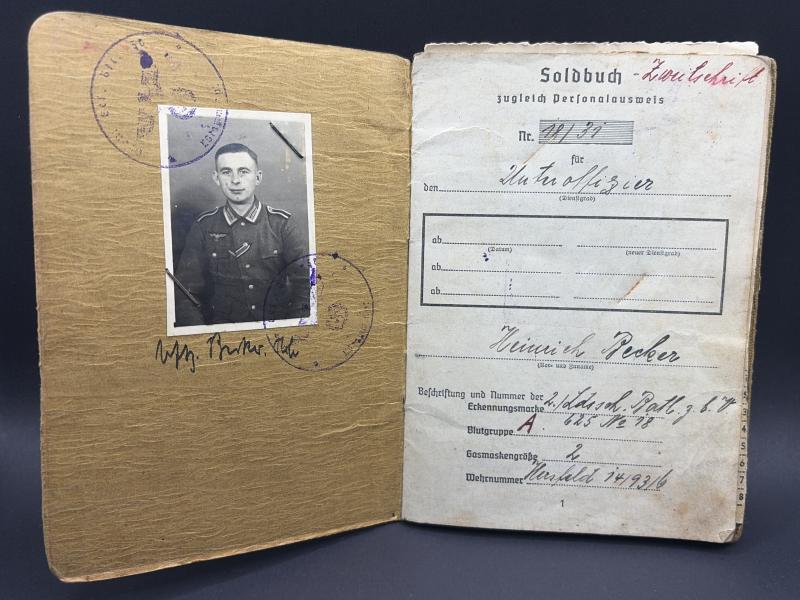 Uffz. Becker
Soldbuch - Zweitschrift
zugleich Personalausweis
Nr. 18/31
für
den Unteroffizier
(Dienstgrad)
ab
(Datum) (neuer Dienstgrad)
ab
ab
Heinrich Becker
(Vor- und Zuname)
Beschriftung und Nummer der
Erkennungsmarke 2./Ldssch. Batl. z. b. V
625 No 18
Blutgruppe A.
Gasmaskengröße 2
Wehrnummer Hersfeld 14/93/6
1
3
4
5
6
7
8